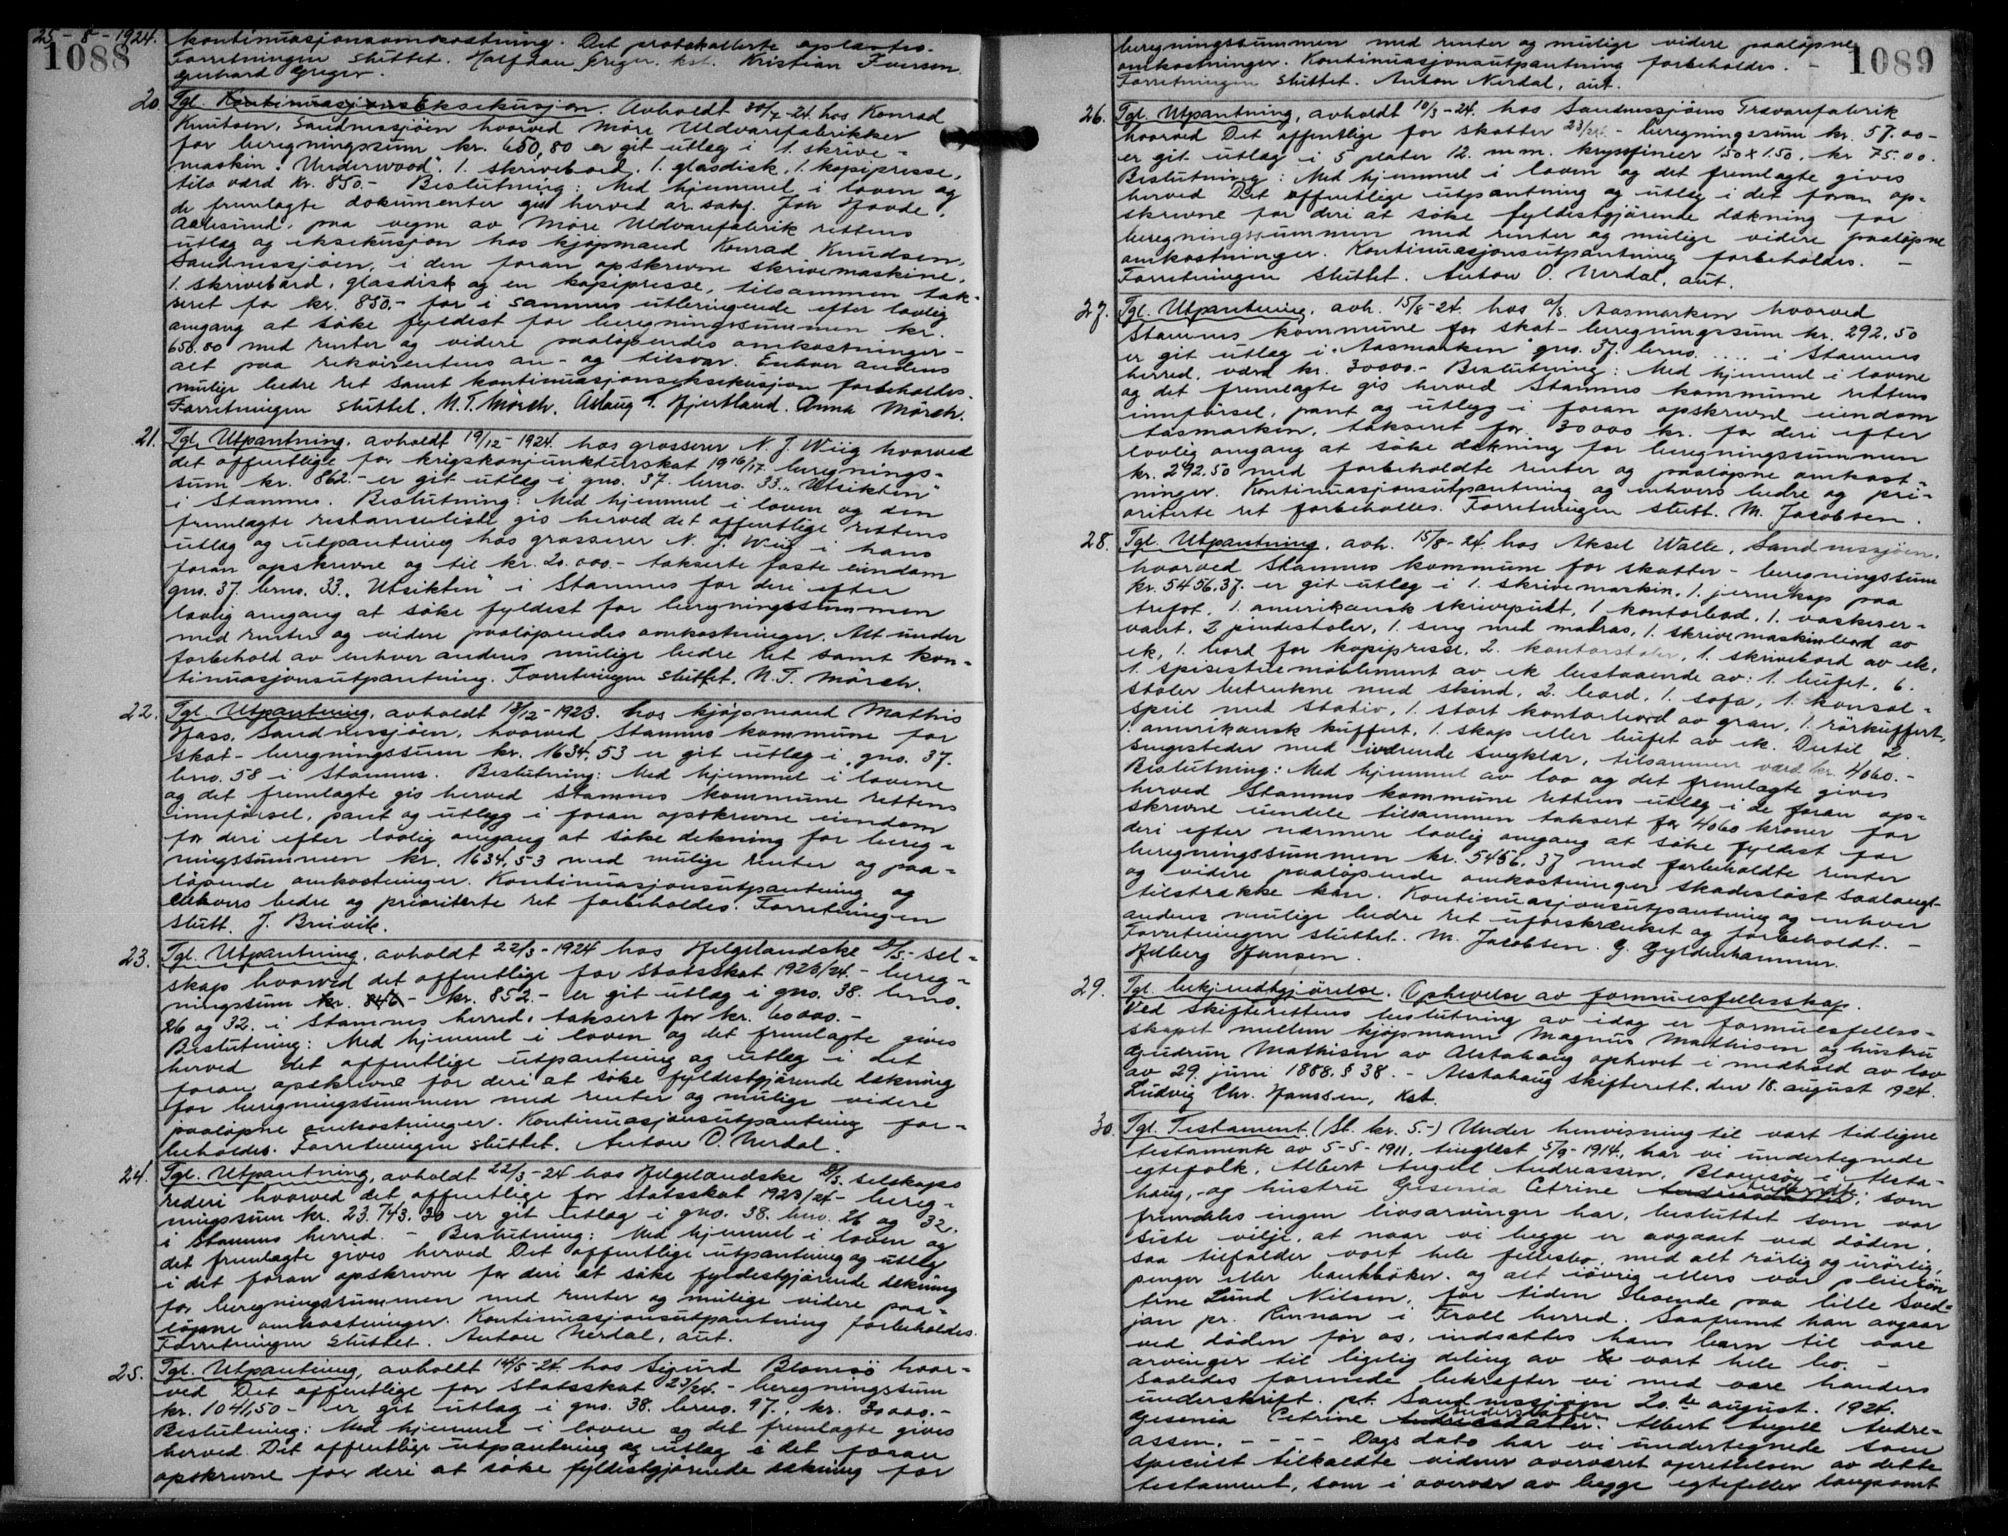 25-8-1924.
1088
kontinuasjonsomkostning. Det protokollerte oplæstes.
Forretningen sluttet. Halfdan Griger. kst. Kristian Iversen.
Gerhard Greger.
20. Tgl. Kontinuasjons Eksekusjon. Avholdt 30/7-24. hos Konrad
Knutsen, Sandnessjöen hvorved Möre Uldvarefabrikker
for beregningssum kr. 650,80 er git utlæg i 1. skrive-
maskin "Underwood", 1. skrivebord, 1. glasdisk, 1. kopipresse,
tils værd kr. 850.- Beslutning: Med hjemmel i loven og
de fremlagte dokumenter gis herved or.sakf. Joh Hovde,
Aalesund, paa vegne av Möre Uldvarefabrik rettens
utlæg og eksekusjon hos kjöpmand Konrad Knudsen,
Sandnessjöen, i den foran opskrevne skrivemaskine,
1. skrivebord, glasdisk og en kopipresse, tilsammen tak-
seret for kr. 850.- for i sammes utleringende efter lovlig
omgang at söke fyldest for beregningssummen kr.
650.80 med renter og videre paalöpendes omkostninger -
alt paa rekvirentens an- og tilsvar. Enhver andens
mulige bedre ret samt kontinuasjonseksekusjon forbeholdes.
Forretningen sluttet. N.T. Mörch. Aslaug T. Hjertland. Anna Mörch.
21. Tgl. Utpantning, avholdt 19/12-1924. hos grosserer N. J. Wiig hvorved
det offentlige for krigskonjunkturskat 1916/17. beregnings-
sum kr. 862.- er git utlæg i gno. 37. brno. 33. "Utsikten"
i Stamnes. Beslutning: Med hjemmel i loven og den
fremlagte restanseliste gis herved det offentlige rettens
utlæg og utpantning hos grosserer N. J. Wiig i hans
foran opskrevne og til kr. 20.000.- takserte faste eiendom
gno. 37. brno. 33. "Utsikten" i Stamnes for deri efter
lovlig omgang at söke fyldest for beregningssummen
med renter og videre paalöpendes omkostninger. Alt under
forbehold av enhver andens mulige bedre ret samt kon-
tinuasjonsutpantning. Forretningen sluttet. N.T. Mörch.
22. Tgl. Utpantning, avholdt 18/12-1923. hos kjöpmand Mathis
Hass, Sandnessjöen, hvorved Stamnes kommune for
skat - beregningssum kr. 1634,53 er git utlæg i gno. 37.
brno. 58 i Stamnes. Beslutning: Med hjemmel i lovene
og det fremlagte gis herved Stamnes kommune rettens
innförsel, pant og utlæg i foran opskrevne eiendom
for deri efter lovlig omgang at söke dekning for bereg-
ningssummen kr. 1634,53 med mulige renter og paa-
löpende omkostninger. Kontinuasjonsutpantning og
enhvers bedre og prioriterte ret forbeholdes. Forretningen
slutt. J. Bruvik.
23. Tgl. Utpantning, avholdt 22/3-1924 hos Helgelandske D/S.-sel-
skap hvorved det offentlige for statsskat 1923/24.- bereg-
ningssum kr. 846.- kr. 852.- er git utlæg i gno. 38. brno.
26 og 32. i Stamnes herred, taksert for kr. 60000.-
Beslutning: Med hjemmel i loven og det fremlagte gives
herved det offentlige utpantning og utlæg i det
foran opskrevne for deri at söke fyldestgjörende dekning
for beregningssummen med renter og mulige videre
paalöpne omkostninger. Kontinuasjonsutpantning for-
beholdes. Forretningen sluttet. Anton O. Nerdal.
24. Tgl. Utpantning, avholdt 22/3-24 hos Helgelandske D/S. selskaps
rederi hvorved det offentlige for statsskat 1923/24.- bereg-
ningssum kr. 23.743.30 er git utlæg i gno. 38. brno. 26 og 32.
i Stamnes herred. - Beslutning: Med hjemmel i loven og
det fremlagte gives herved Det offentlige utpantning og utlæg
i det foran opskrevne for deri at söke fyldestgjörende dekning
for beregningssummen med renter og mulige videre paa-
löpne omkostninger. Kontinuasjonsutpantning forbeholdes.
Forretningen sluttet. Anton Nerdal, aut.
25. Tgl. Utpantning, avholdt 14/5-24. hos Sigurd Blomsö hvor-
ved Det offentlige for statsskat 23/24.- beregningssum
kr. 1041,50 - er git utlæg i gno. 38. brno. 97., kr. 30000.-
Beslutning: Med hjemmel i lovene og det fremlagte gives
herved Det offentlige utpantning og utlæg i det foran
opskrevne for deri at söke fyldestgjörende dekning for
1089
beregningssummen med renter og mulige videre paalöpne
omkostninger. Kontinuasjonsutpantning forbeholdes. -
Forretningen sluttet. Anton Nerdal, aut.
26. Tgl. Utpantning, avholdt 10/3-24. hos Sandnessjöens Trævarefabrik
hvorved Det offentlige for skatter 23/24.- beregningssum kr. 57.00-
er git utlæg i 5 plater 12. m.m. kryssfineer 150x1.50. kr 75.00.
Beslutning: Med hjemmel i loven og det fremlagte gives
herved Det offentlige utpantning og utlæg i det foran op-
skrevne for deri at söke fyldistgjörende dækning for
beregningssummen med renter og mulige videre paalöpne
omkostninger. Kontinuasjonsutpantning forbeholdes. -
Forretningen sluttet. Anton O. Nerdal, aut.
27. Tgl. Utpantning, avh. 15/8-24. hos A/S. Aasmarken hvorved
Stamnes kommune for skat - beregningssum kr. 292.50
er git utlæg i "Aasmarken" gno. 37. brno. .... i Stamnes
herred, værd kr. 30000.- Beslutning: Med hjemmel i lovene
og det fremlagte gis herved Stamnes kommune rettens
innförsel, pant og utlegg i foran opskrevne eiendom
Aasmarken, takseret for 30000 kr. for deri efter
lovlig omgang at söke dekning for beregningssummen
kr. 292.50 med forbeholdte renter og paalöpne omkost-
ninger. Kontinuasjonsutpantning og enhvers bedre og pri-
oriterte ret forbeholdes. Forretningen slutt. M. Jacobsen.
28. Tgl. Utpantning, avh. 15/8-24. hos Aksel Walle, Sandnessjöen.
hvorved Stamnes kommune for skatter - beregningssum
kr. 5456.37. er git utlæg i 1. skrivemaskin, 1. jernskap paa
trefot, 1. amerikansk skrivepult, 1 kontorbord, 1. vaskeser-
vant, 2 pindestoler, 1. seng med madras, 1. skrivemaskinbord av
ek, 1. bord for kopipresse, 2. kontorstoler, 1. skrivebord av ek,
1. spisestuemöblement av ek bestaaende av: 1. bufet, 6.
stoler betrukne med skind, 2. bord, 1. sofa, 1. konsol-
speil med stativ, 1. stort kontorbord av gran, 1. rörkuffert,
1. amerikansk kuffert, 1. skap eller bufet av ek. Dertil 2
sengesteder med iværende sengklær, tilsammen værd kr. 4060.-
Beslutning: Med hjemmel av lov og det fremlagte gives
herved Stamnes kommune rettens utlæg i de foran op-
skrevne eiendele tilsammen taksert for 4060 kroner for
deri efter nærmere lovlig omgang at söke fyldest for
beregningssummen kr. 5456.37 med forbeholdte renter
og videre paalöpende omkostninger skadeslöst saalangt
tilstrække kan. Kontinuasjonsutpantning og enhver
andens mulige bedre ret uforskrænket og forbeholdt. -
Forretningen sluttet. M. Jacobsen. G. Gyldenhammer.
Helberg Hansen.
29. Tgl. bekjendtgjörelse. Ophevelse av formuesfellesskap.
Ved skifterettens beslutning av idag er formuesfelles-
skapet mellem kjöpmann Magnus Mathisen og hustru
Gudrun Mathisen av Alstahaug ophevet i medhold av lov
av 29. juni 1888. § 38. - Alstahaug skifterett, den 18. august 1924.
Ludvig Chr. Hanssen, Kst.
30. Tgl. Testament. (St. kr. 5.-) Under henvisning til vort tidligere
testamente av 5-5-1911, tinglest 5/9-1914, har vi undertegnede
egtefolk, Albert Angell Andreassen, Blomsöy i Alsta-
haug, og hustru Gesenia Cetrine Andersdatter, som
fremdeles ingen livsarvinger har, besluttet som vor
siste vilje, at naar vi begge er avgaat ved döden,
saa tilfalder vort hele fellesbo med alt rörlig og urörlig,
penger eller bankböker. og alt iövrig ellers vor pleiesön
Lund Nilsen, for tiden boende paa lille Sved-
jan pr. Rinnan i Frol herred. Saafremt han avgaar
ved döden för os, indsættes hans barn til vore
arvinger til ligelig deling av vort hele bo. -
Saaledes formede bekrefter vi med vore hænders
underskrift. pt. Sandnessjöen 20.de august. 1924.
Gesenia Cetrine Andersdatter. Albert Angell Andre-
assen. - - - - Dags dato har vi undertegnede som
specielt tilkaldte vidner overværet oprettelsen av dette
testament, som i overvær av begge egtefeller langsomt